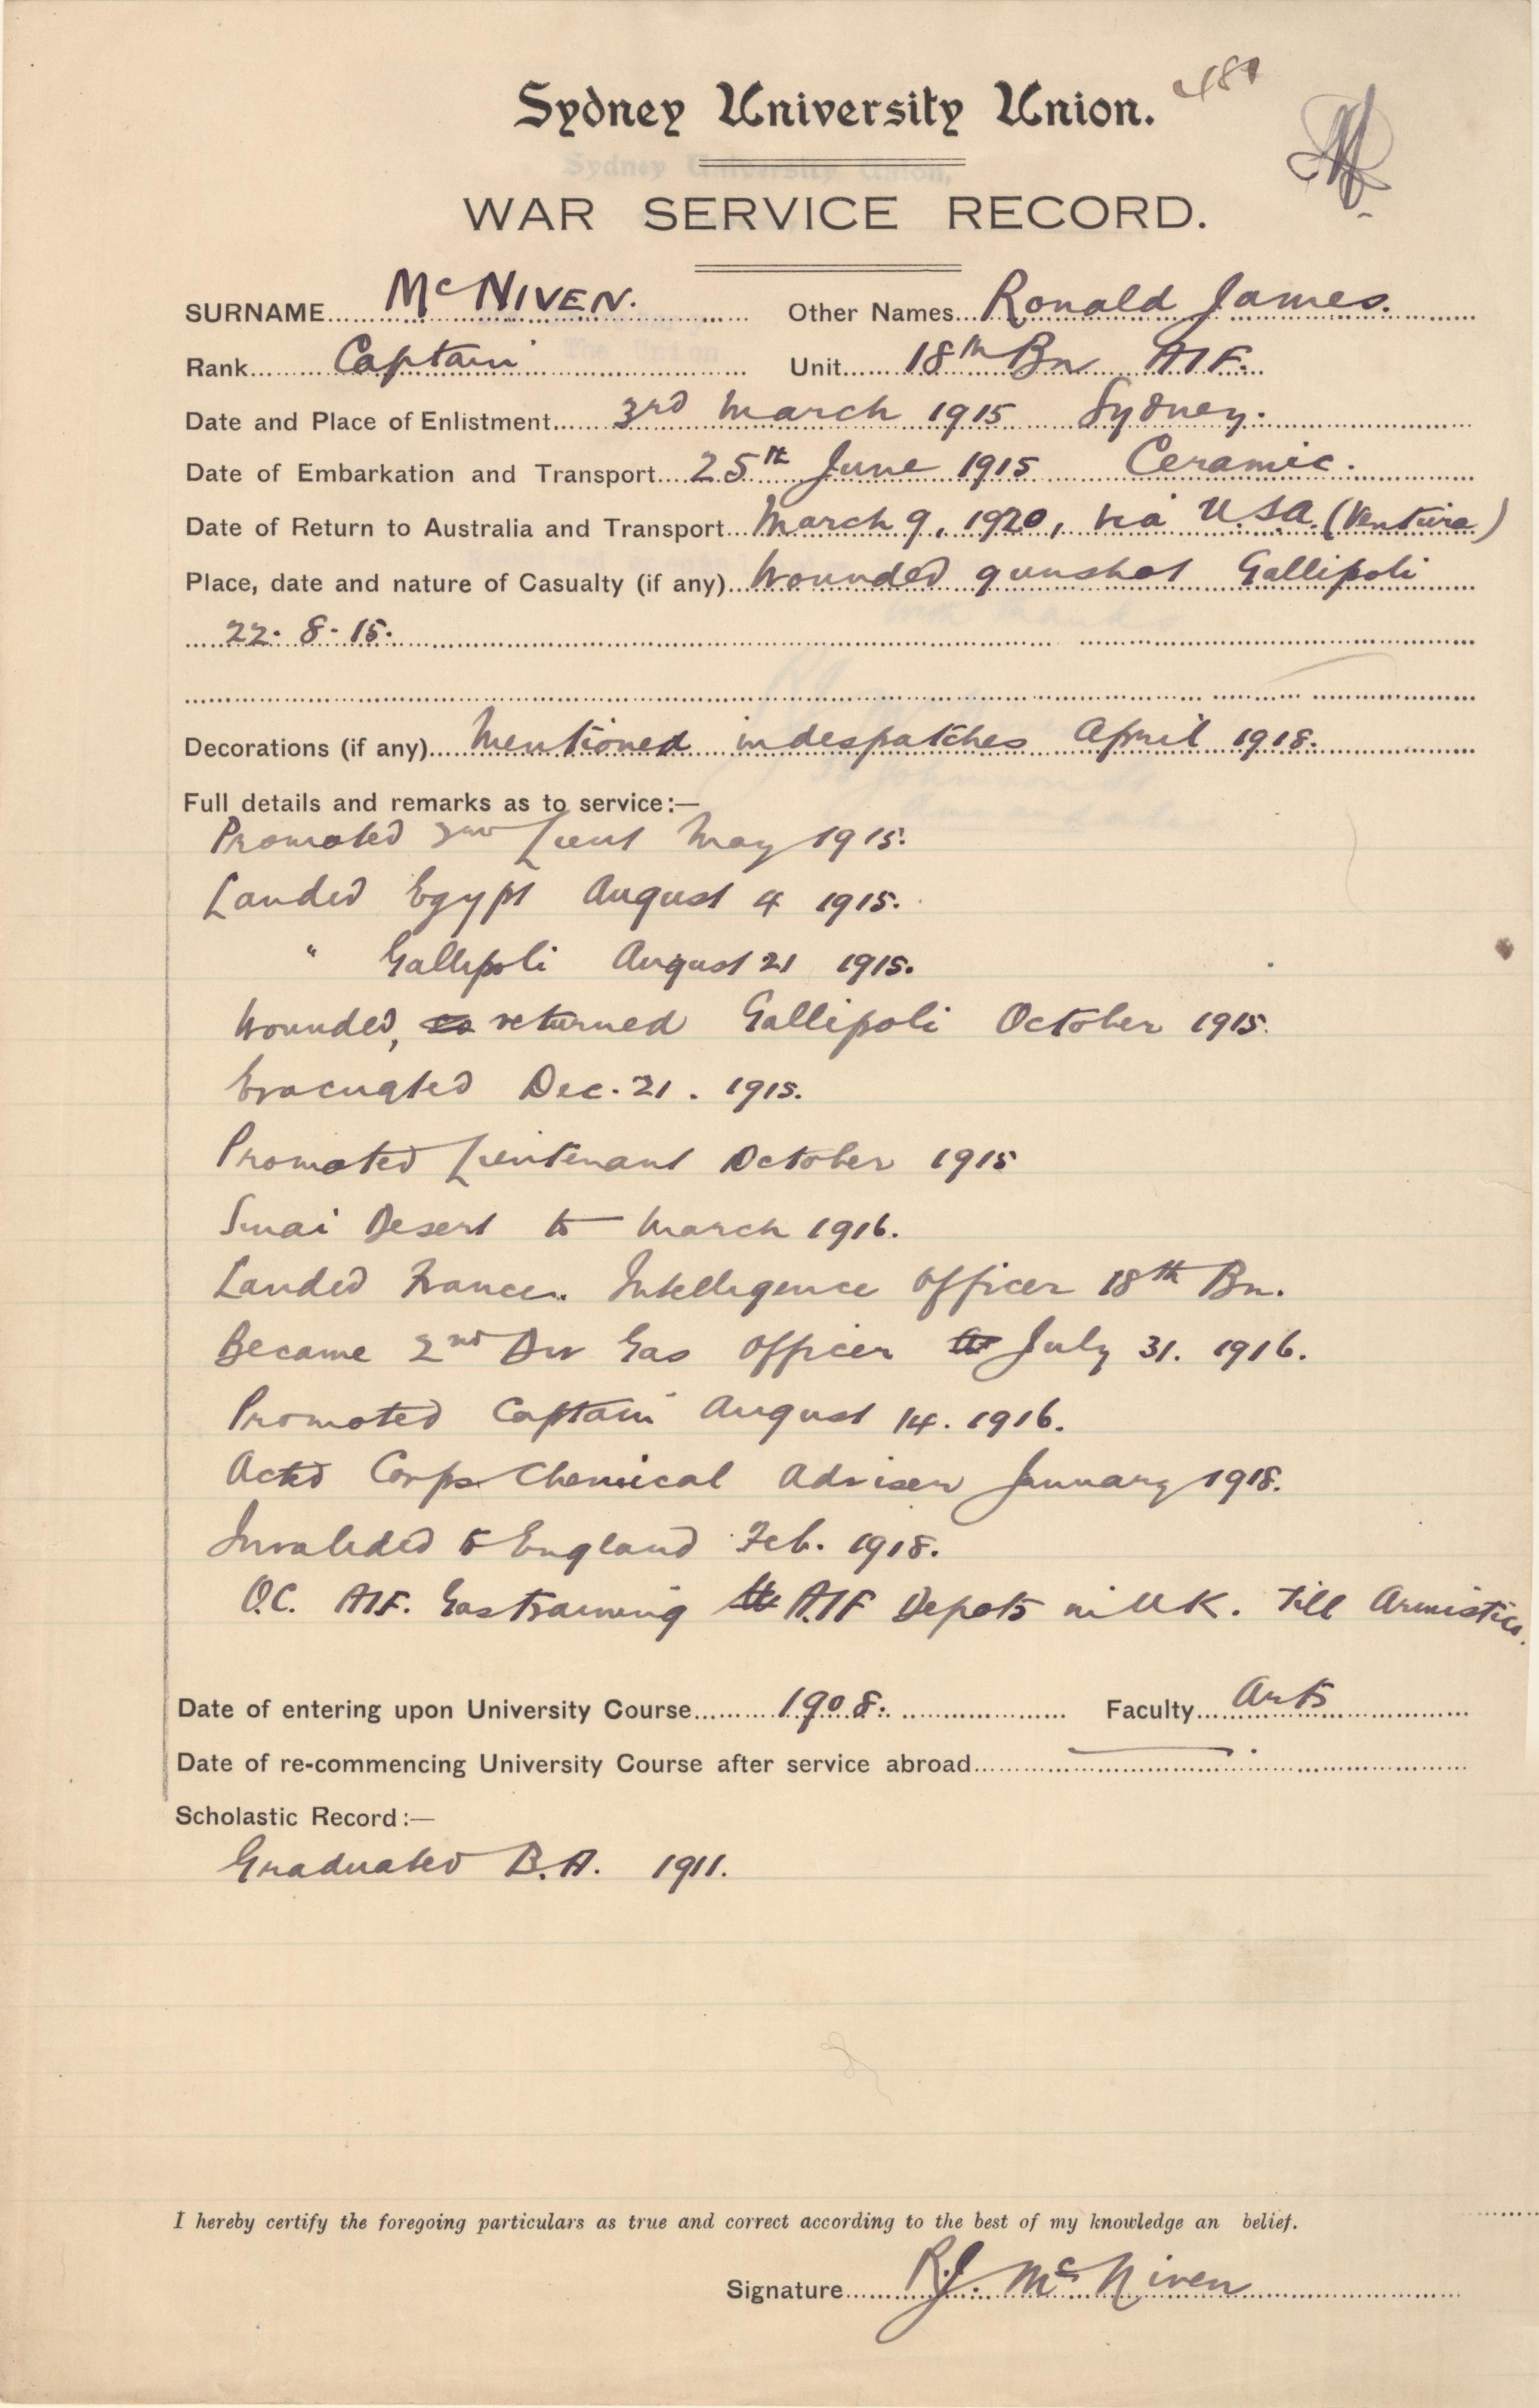 Sydney University Union.
WAR SERVICE RECORD.
SURNAME McNIVEN. Other Names Ronald James.
Rank Captain Unit 18th Bn AIF.
Date and Place of Enlistment 3rd March 1915 Sydney.
Date of Embarkation and Transport 25th June 1915 Ceramic.
Date of Return to Australia and Transport March 9, 1920, via U.S.A. (Ventura)
Place, date and nature of Casualty (if any) Wounded gunshot Gallipoli
22. 8. 15.
Decorations (if any) Mentioned in despatches April 1918.
Full details and remarks as to service:—
Promoted 2nd Lieut May 1915.
Landed Egypt August 4 1915.
" Gallipoli August 21 1915.
Wounded, returned Gallipoli October 1915.
Evacuated Dec. 21. 1915.
Promoted Lieutenant October 1915
Sinai Desert to March 1916.
Landed France. Intelligence Officer 18th Bn.
Became 2nd Div Gas Officer July 31. 1916.
Promoted Captain August 14. 1916.
Acted Corps Chemical Adviser January 1918.
Invalided to England Feb. 1918.
O.C. AIF. Gas training AIF Depots in UK. till Armistice.
Date of entering upon University Course 1908. Faculty Arts
Date of re-commencing University Course after service abroad
Scholastic Record:—
Graduated B.A. 1911.
I hereby certify the foregoing particulars as true and correct according to the best of my knowledge an belief.
Signature R.J. McNiven